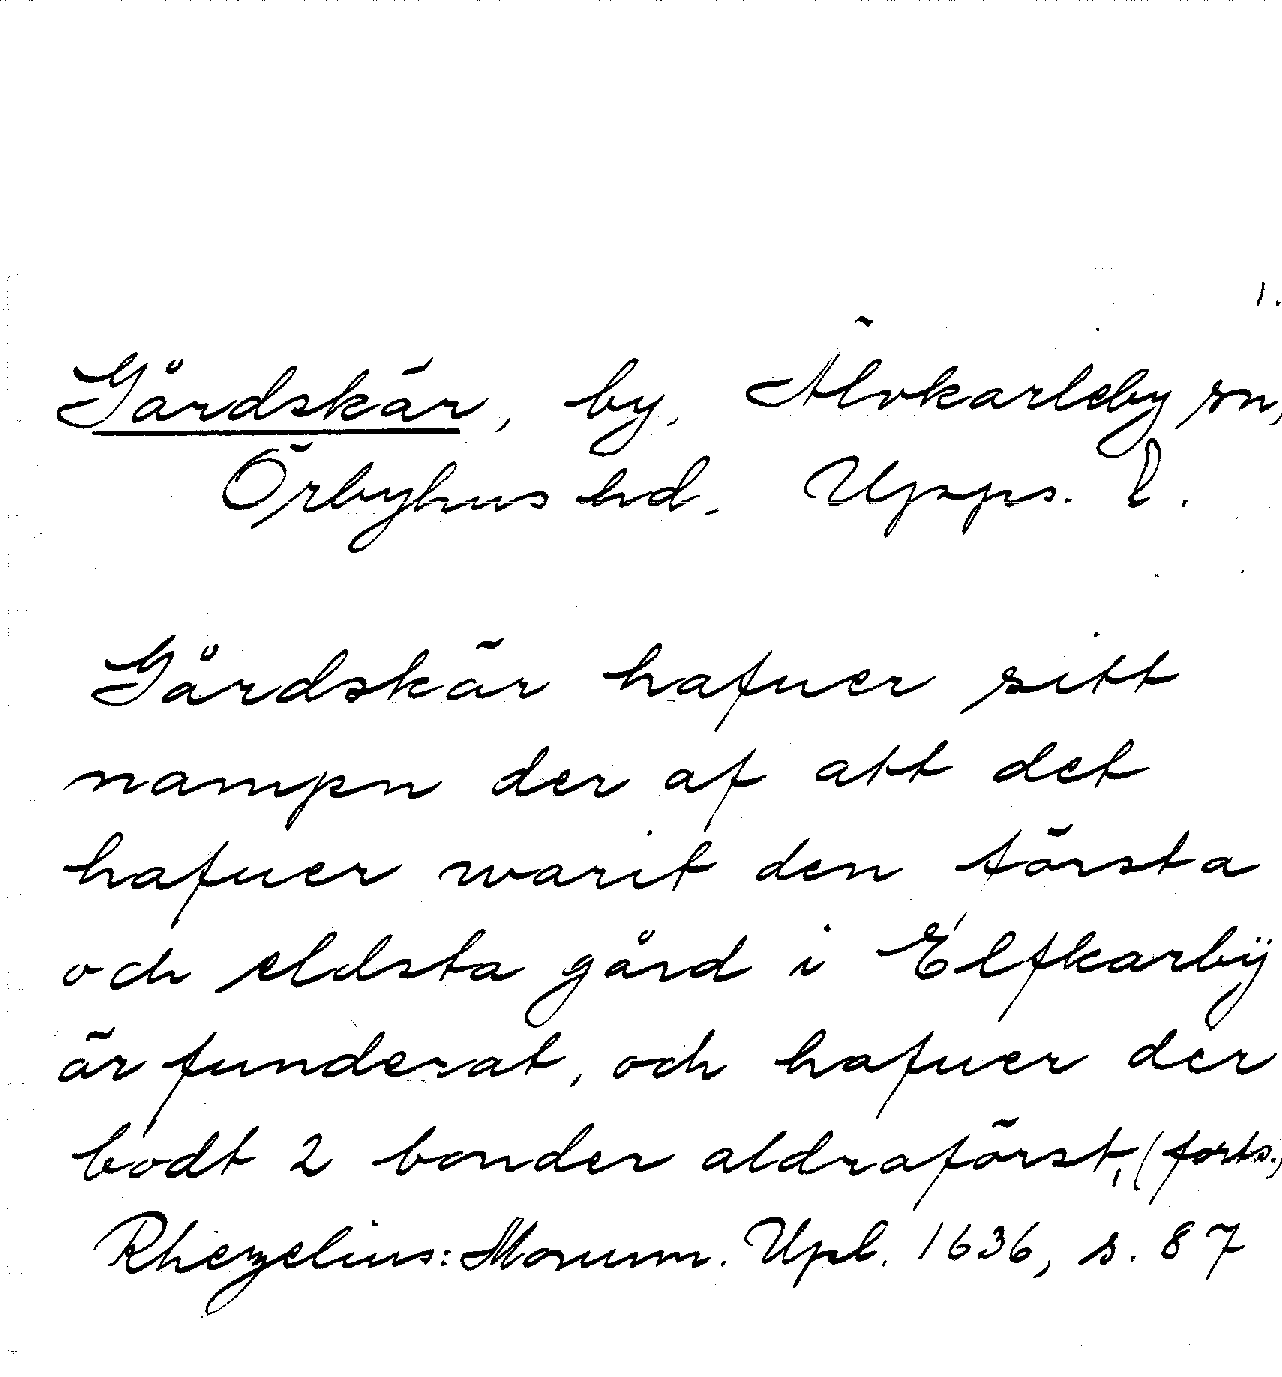 1.
Gårdskär, by, Älvkarleby sn,
Örbyhus hd. Upps. l.
Gårdskär hafuer sitt
nampn der af att det
hafuer warit den första
och eldsta gård i Elfkarbÿ
är funderat, och hafuer der
bodt 2 bonder aldraförst, (forts.)
Rhezelius: Monum. Upl. 1636, s. 87